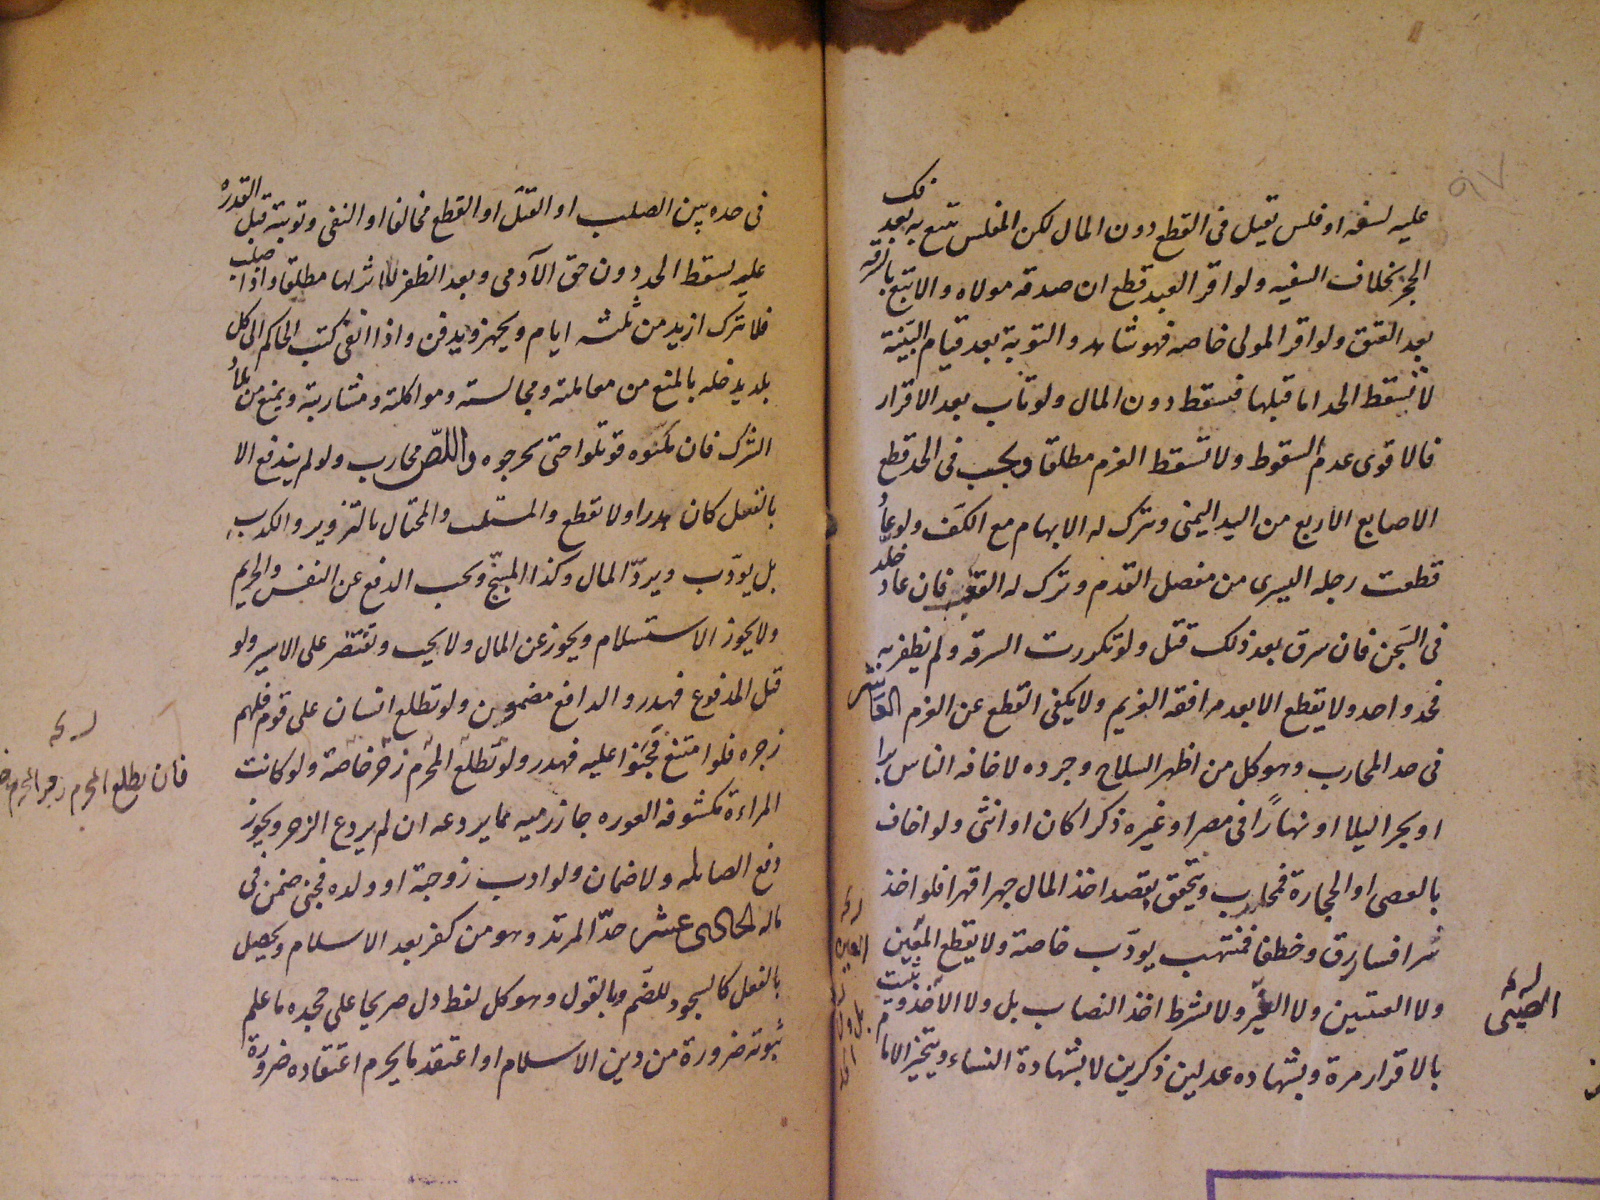 عليه لسفه او فلس يقبل فى القطع دون المال لكن المفلس يتبع به بعد فك
الحجر بخلاف السفيه ولو اقر العبد قطع ان صدقه مولاه والا تتبع بالسرقة
بعد العتق ولو اقر المولى خاصه فهو شاهد والتوبة بعد قيام البينة
لا تسقط الحد اما قبلها فتسقط دون المال ولو تاب بعد الاقرار
فالاقوى عدم السقوط ولا تسقط الغرم مطلقا ويجب فى الحد قطع
الاصابع الاربع من اليد اليمنى وترك له الابهام مع الكف ولو عاد
قطعت رجله اليسرى من مفصل القدم وترك له العقب فان عاد خلد
فى السجن فان سرق بعد ذلك قتل ولو تكررت السرقه ولم يظفر به
فحد واحد ولا يقطع الا بعد مرافقه الغريم ولا يكفى القطع عن الغرم العاشر
فى حد المحارب وهو كل من اظهر السلاح وجرده لاخافه الناس برا
او بحرا ليلا او نهارًا فى مصر او غيره ذكرا كان او انثى ولو اخاف
بالعصى او الحجارة فمحارب ويتحقق بقصد اخذ المال جهرا قهرا فلو اخذ
سرا فسارق وخطفا فمنتهب يودّب خاصة ولا يقطع المعين
ولا ولا ولا يشترط اخذ النصاب بل ولا الاخذ ويثبت
بالاقرار مرة وبشهاده عدلين ذكرين لا بشهادة النساء ويتخير الامام
الصبى
فى حده بين الصلب او القتل او القطع مخالفا او النفى وتوبته قبل القدره
عليه يسقط الحد دون حق الآدمى وبعد الظفر لا اثر لها مطلقا واذا صلب
فلا يترك ازيد من ثلثه ايام ويجهز ويدفن واذا انفى كتب الحاكم الى كل
بلد يدخله بالمنع من معاملته ومجالسته ومواكلته ومشاربته ويمنع من بلاد
الشرك فان مكنوه قوتلوا حتى يخرجوه واللصّ محارب ولو لم يندفع الا
بالقتل كان هدرا ولا تقطع والمستلب والمحتال بالتزوير والكذب
بل يودّب ويردّ المال وكذا المبنج ويجب الدفع عن النفس والحريم
ولا يجوز الاستسلام ويجوز عن المال ولا يجب ويقتصر على الايسر ولو
قتل المدفوع فهدر والدافع مضمون ولو تطلع انسان على قوم فلهم
زجره فلو امتنع فجنوا عليه فهدر ولو تطلع المحرم زجر خاصة ولو كانت
المراءة مكشوفة العوره جاز رميه بما يردعه ان لم يردع الزجر ويجوز
دفع الصايله ولا ضمان ولو ادب زوجته او ولده فجنى ضمن فى
ماله الحادى عشر حدّ المرتد وهو من كفر بعد الاسلام ويحصل
بالفعل كالسجود للصنم وبالقول وهو كل لفظ دل صريحا على جحده ما علم
ثبوته ضرورة من دين الاسلام او اعتقد ما يحرم اعتقاده ضرورة
فان يطلع المحرم زجر المحرم